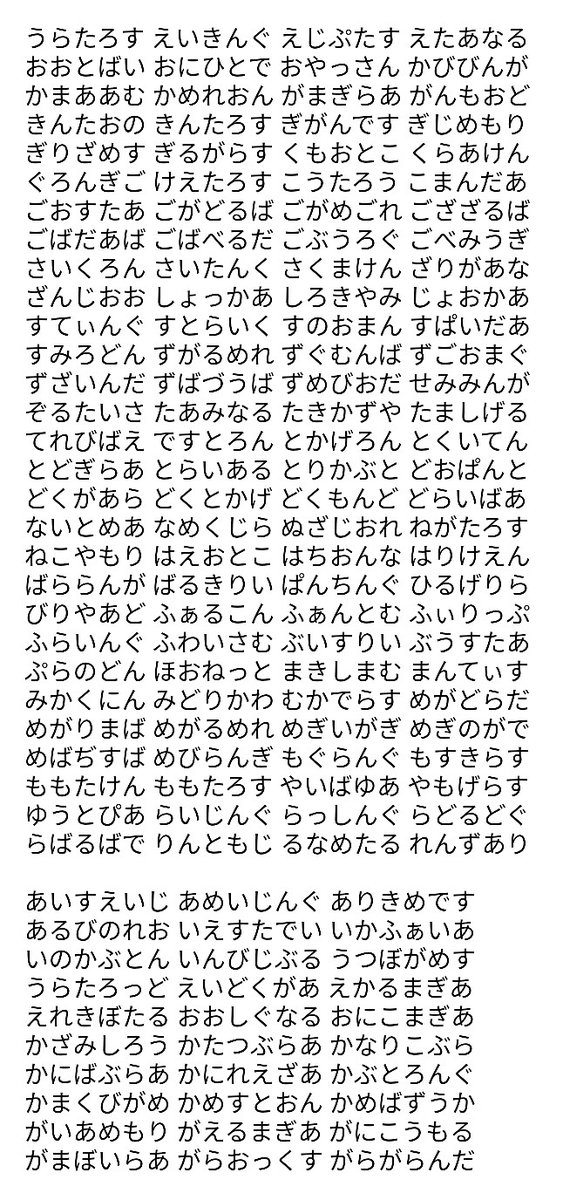 うらたろす えいきんぐ えじぷたす えたあなる
おおとばい おにひとで おやっさん かびびんが
かまああむ かめれおん がまぎらあ がんもおど
きんたおの きんたろす ぎがんです ぎじめもり
ぎりざめす ぎるがらす くもおとこ くらあけん
ぐろんぎご けえたろす こうたろう こまんだあ
ごおすたあ ごがどるば ごがめごれ ござざるば
ごばだあば ごばべるだ ごぶうろぐ ごべみうぎ
さいくろん さいたんく さくまけん ざりがあな
ざんじおお しょっかあ しろきやみ じょおかあ
すてぃんぐ すとらいく すのおまん すぱいだあ
すみろどん ずがるめれ ずぐむんば ずごおまぐ
ずざいんだ ずばづうば ずめびおだ せみみんが
ぞるたいさ たあみなる たきかずや たましげる
てれびばえ ですとろん とかげろん とくいてん
とどぎらあ とらいある とりかぶと どおぱんと
どくがあら どくとかげ どくもんど どらいばあ
ないとめあ なめくじら ぬざじおれ ねがたろす
ねこやもり はえおとこ はちおんな はりけえん
ばららんが ばるきりい ぱんちんぐ ひるげりら
びりやあど ふぁるこん ふぁんとむ ふぃりっぷ
ふらいんぐ ふわいさむ ぶいすりい ぶうすたあ
ぷらのどん ほおねっと まきしまむ まんてぃす
みかくにん みどりかわ むかでらす めがどらだ
めがりまば めがるめれ めぎいがぎ めぎのがで
めばぢすば めびらんぎ もぐらんぐ もすきらす
ももたけん ももたろす やいばゆあ やもげらす
ゆうとぴあ らいじんぐ らっしんぐ らどるどぐ
らばるばで りんともじ るなめたる れんずあり
あいすえいじ あめいじんぐ ありきめです
あるびのれお いえすたでい いかふぁいあ
いのかぶとん いんびじぶる うつぼがめす
うらたろっど えいどくがあ えかるまぎあ
えれきぼたる おおしぐなる おにこまぎあ
かざみしろう かたつぶらあ かなりこぶら
かにばぶらあ かにれえざあ かぶとろんぐ
かまくびがめ かめすとおん かめばずうか
がいあめもり がえるまぎあ がにこうもる
がまぼいらあ がらおっくす がらがらんだ